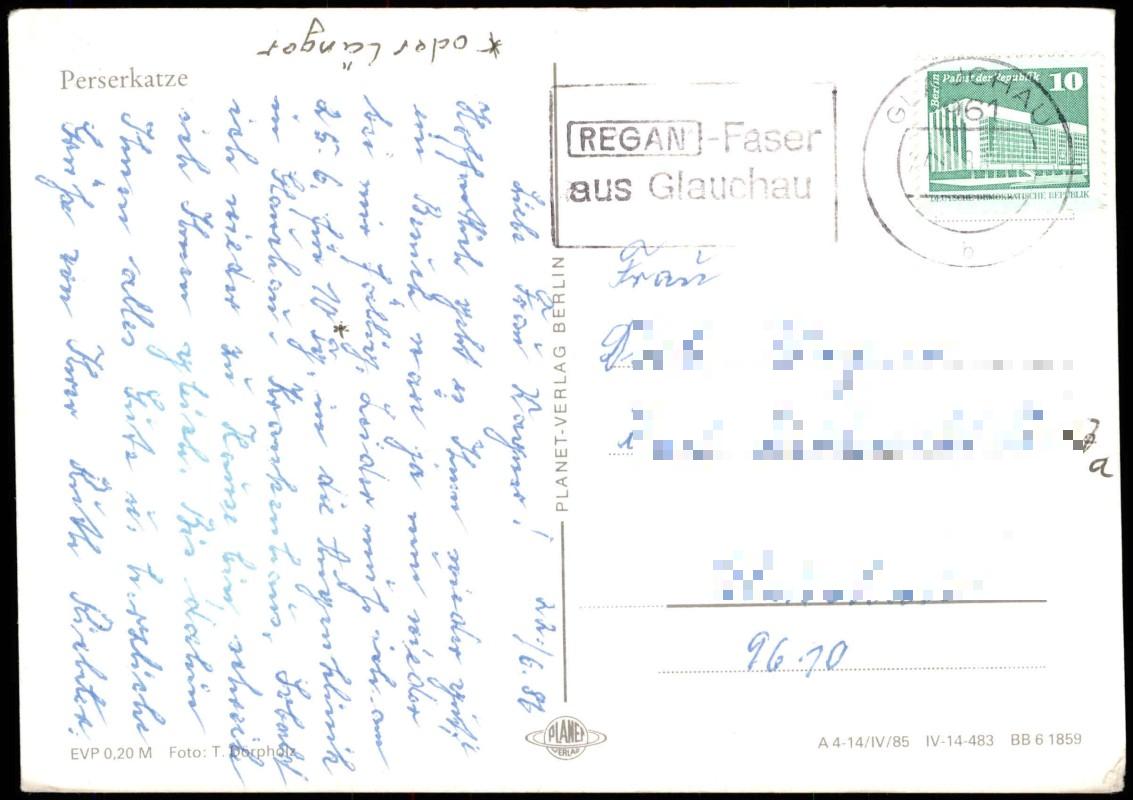 * oder länger
Perserkatze
Liebe Frau Wagner! 22./6. 86
Hoffentlich geht es Ihnen wieder gut,
ein Besuch wäre ja nun wieder
bei mir fällig. Leider muß ich am
25. 6. für 10 Tg.* in die Augenklinik
im Glauchauer Krankenhaus. Sobald
ich wieder zu Hause bin, schreib
ich Ihnen gleich. Bis dahin
Ihnen alles Gute u. herzliche
Grüße von Ihrer Ruth Richter.
EVP 0,20 M Foto: T. Dörpholz
PLANET-VERLAG BERLIN
PLANET
VERLAG
REGAN-Faser
aus Glauchau
GLAUCHAU
961
b
Berlin Palast der Republik 10
DEUTSCHE DEMOKRATISCHE REPUBLIK
Frau
a
9610
A 4-14/IV/85 IV-14-483 BB 6 1859